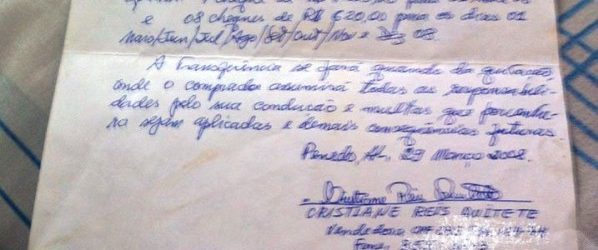 e 08 cheques de R$ 620,00 para os dias 01
Maio/Jun/Jul/Ago/Set/Out/Nov e Dez 08.
A Transferência se fará quando da quitação,
onde o comprador assumirá todas as responsabili-
dades pelo sua condução e multas que porventu-
ra sejam aplicadas e demais consequências futuras.
Penedo, AL, 29 Março 2008.
CRISTIANE REIS QUITETE
Vendedora
Fone: